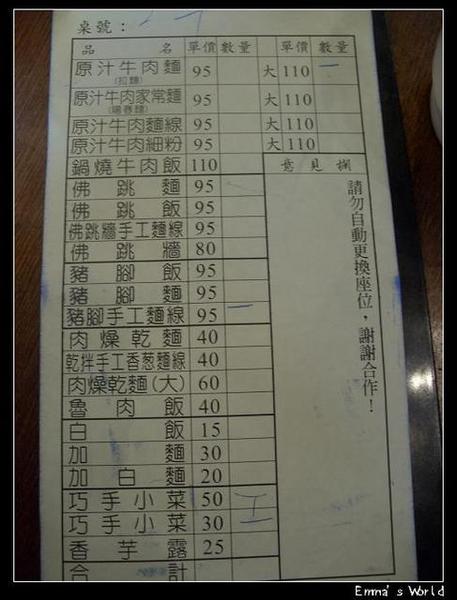 桌號：
品名 單價 數量 單價 數量
原汁牛肉麵 95 大 110 一
(拉麵)
原汁牛肉家常麵 95 大 110
(陽春麵)
原汁牛肉麵線 95 大 110
原汁牛肉細粉 95 大 110
鍋燒牛肉飯 110 意見欄
佛跳麵 95
佛跳飯 95
佛跳牆手工麵線 95
佛跳牆 80
豬腳飯 95
豬腳麵 95
豬腳手工麵線 95 一
肉燥乾麵 40
乾拌手工香葱麵線 40
肉燥乾麵(大) 60
魯肉飯 40
白飯 15
加麵 30
加白麵 20
巧手小菜 50
巧手小菜 30
香芋露 25
合計
請勿自動更換座位，謝謝合作！
Emma's World